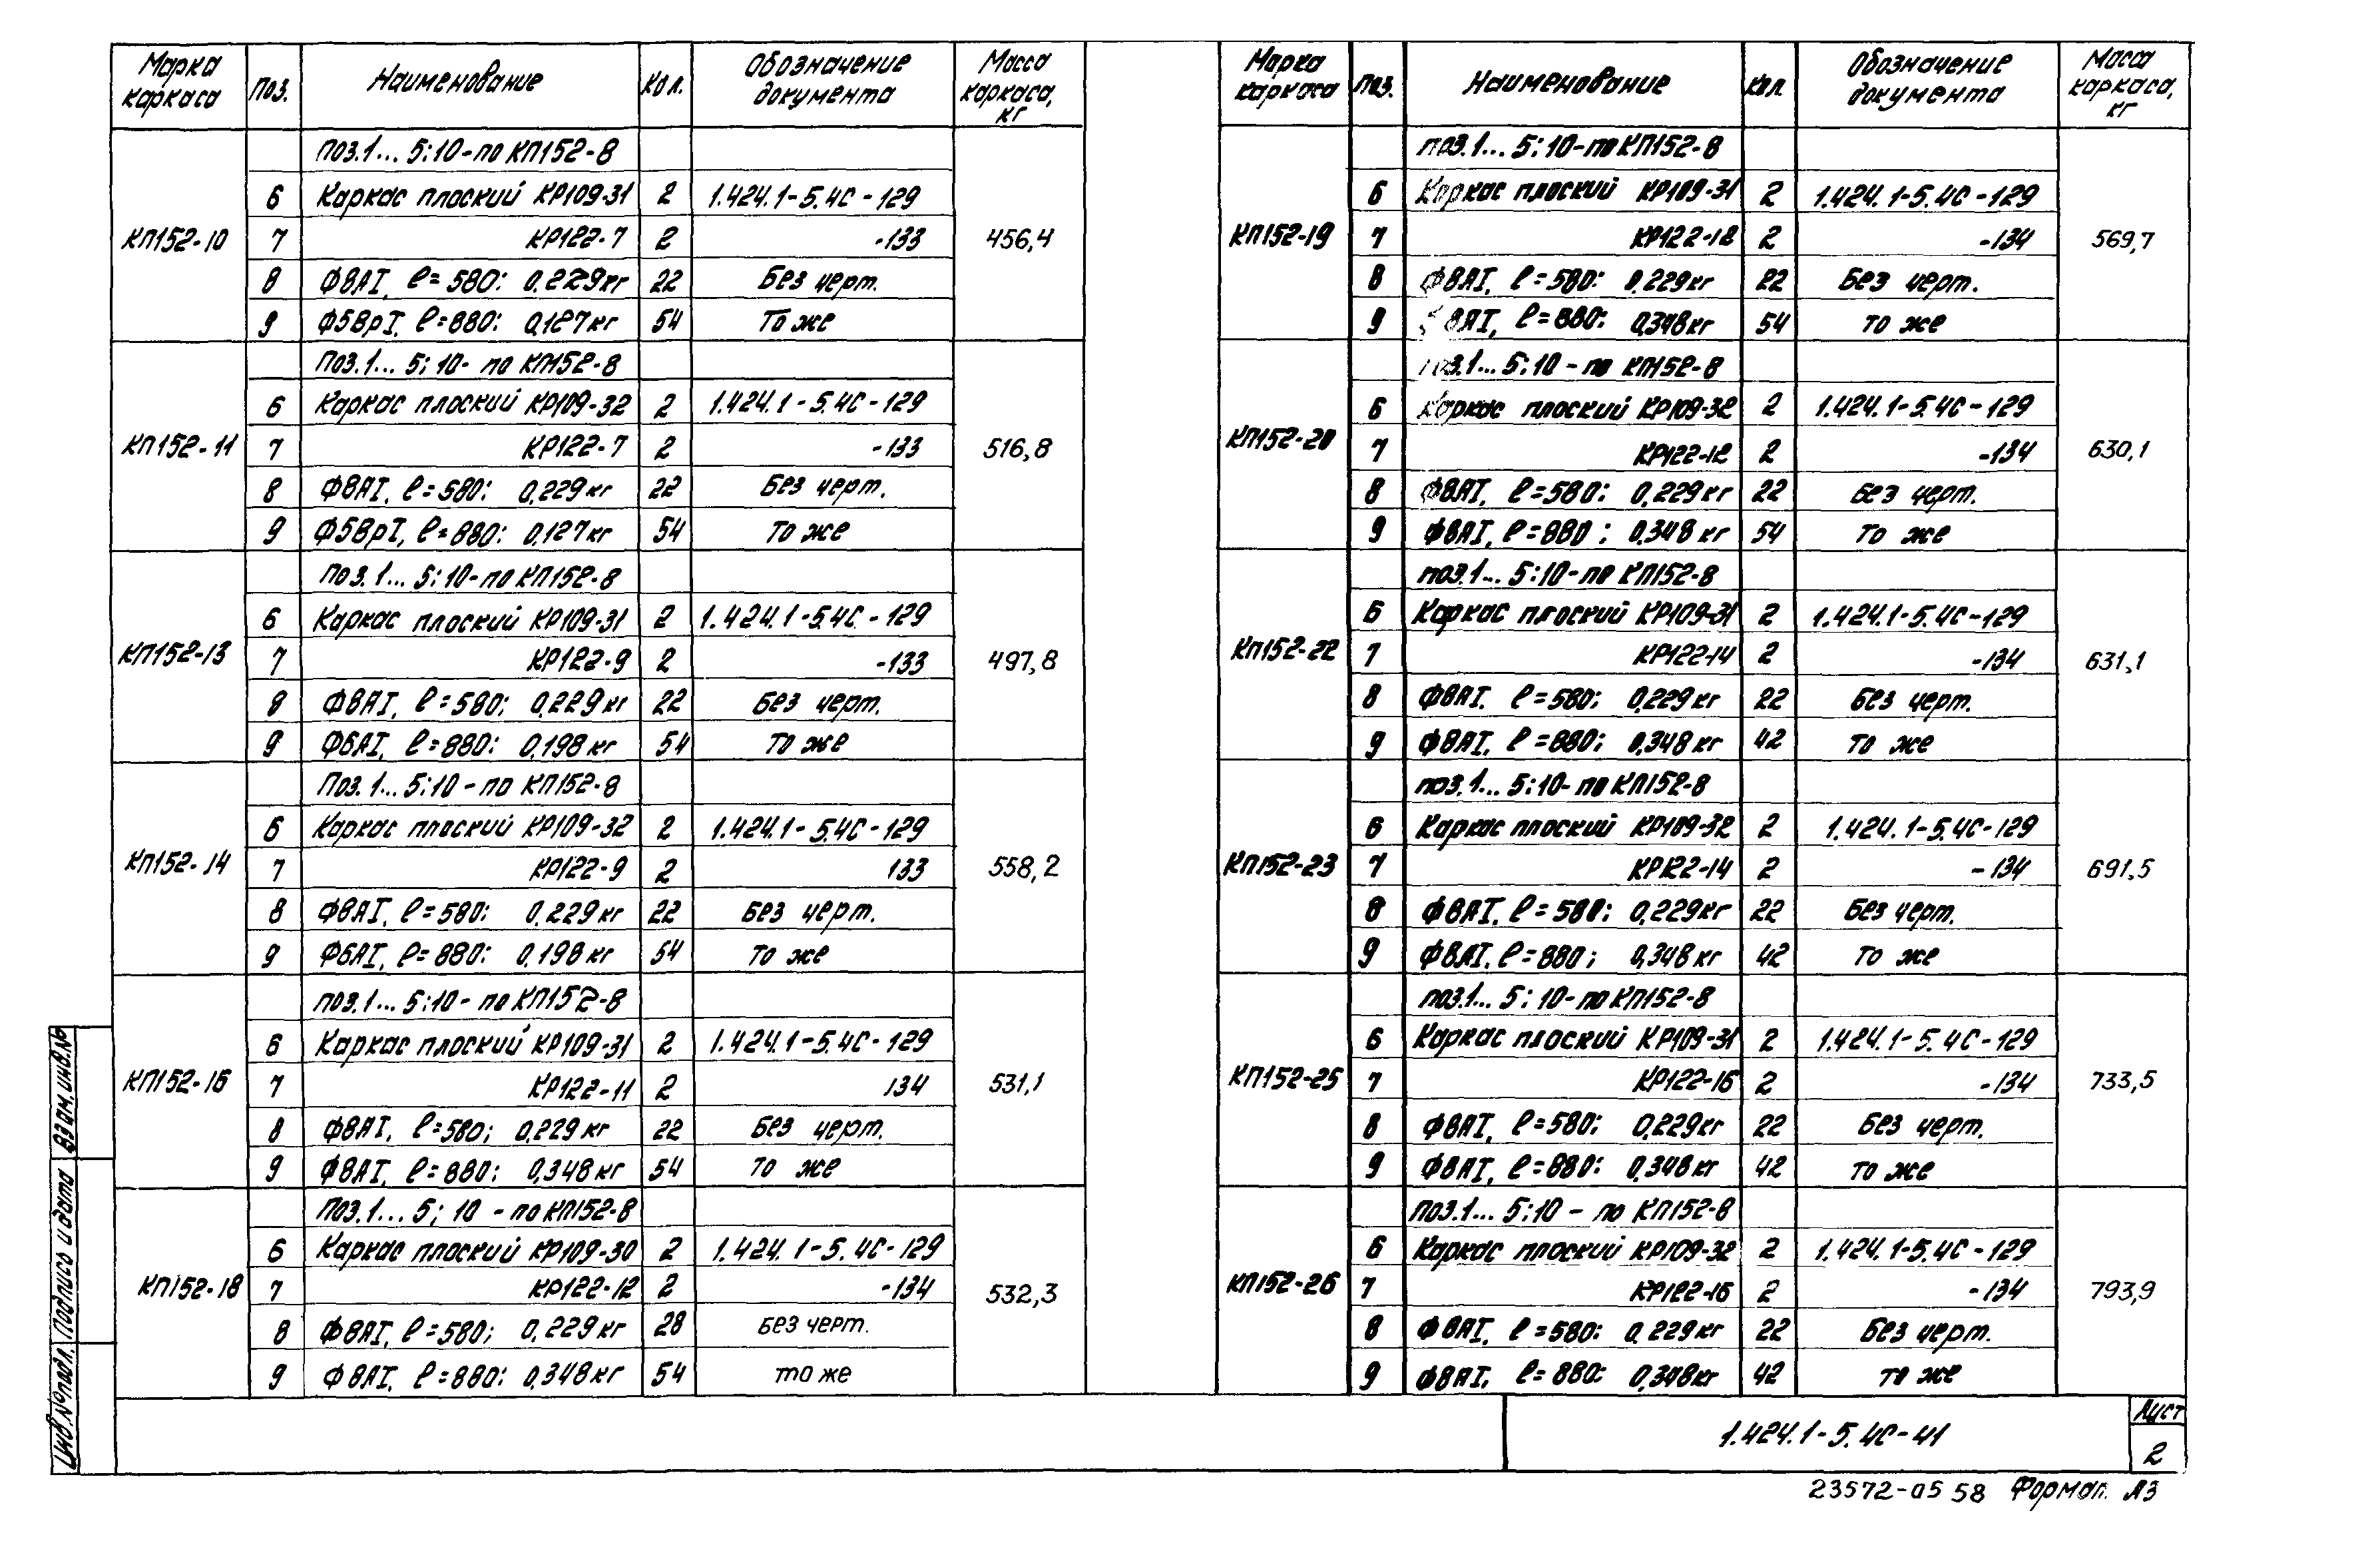 Марка каркаса Поз. Наименование Кол. Обозначение документа Масса каркаса, кг
Поз.1... 5; 10-по КП152-8
КП152-10 456,4
6 Каркас плоский КР109-31 2 1.424.1-5.4С-129
7 КР122-7 2 -133
8 Ф8АI, ℓ=580; 0,229кг 22 Без черт.
9 Ф5ВрI, ℓ=880; 0,127кг 54 То же
Поз.1... 5; 10- по КП152-8
КП152-11 516,8
6 Каркас плоский КР109-32 2 1.424.1-5.4С-129
7 КР122-7 2 -133
8 Ф8АI, ℓ=580; 0,229кг 22 Без черт.
9 Ф5ВрI, ℓ=880; 0,127кг 54 То же
Поз.1... 5; 10-по КП152-8
КП152-13 497,8
6 Каркас плоский КР109-31 2 1.424.1-5.4С-129
7 КР122-9 2 -133
8 Ф8АI, ℓ=580; 0,229кг 22 Без черт.
9 Ф6АI, ℓ=880; 0,198кг 54 То же
Поз.1... 5; 10-по КП152-8
КП152-14 558,2
6 Каркас плоский КР109-32 2 1.424.1-5.4С-129
7 КР122-9 2 133
8 Ф8АI, ℓ=580; 0,229кг 22 Без черт.
9 Ф6АI, ℓ=880; 0,198кг 54 То же
Поз.1... 5; 10- по КП152-8
КП152-16 531,1
6 Каркас плоский КР109-31 2 1.424.1-5.4С-129
7 КР122-11 2 134
8 Ф8АI, ℓ=580; 0,229кг 22 Без черт.
9 Ф8АI, ℓ=880; 0,348кг 54 То же
Поз.1... 5; 10 - по КП152-8
КП152-18 532,3
6 Каркас плоский КР109-30 2 1.424.1-5.4С-129
7 КР122-12 2 -134
8 Ф8АI, ℓ=580; 0,229кг 28 Без черт.
9 Ф8АI, ℓ=880; 0,348кг 54 то же
Марка каркаса Поз. Наименование Кол. Обозначение документа Масса каркаса, кг
поз.1... 5; 10-по КП152-8
КП152-19 569,7
6 Каркас плоский КР109-31 2 1.424.1-5.4С-129
7 КР122-12 2 -134
8 Ф8АI, ℓ=580; 0,229кг 22 Без черт.
9 Ф8АI, ℓ=880; 0,348кг 54 то же
Поз.1... 5; 10 - по КП152-8
КП152-20 630,1
6 Каркас плоский КР109-32 2 1.424.1-5.4С-129
7 КР122-12 2 -134
8 Ф8АI, ℓ=580; 0,229кг 22 Без черт.
9 Ф8АI, ℓ=880; 0,348кг 54 То же
поз.1... 5; 10-по КП152-8
КП152-22 631,1
6 Каркас плоский КР109-31 2 1.424.1-5.4С-129
7 КР122-14 2 -134
8 Ф8АI, ℓ=580; 0,229кг 22 Без черт.
9 Ф8АI, ℓ=880; 0,348кг 42 То же
поз.1... 5; 10-по КП152-8
КП152-23 691,5
6 Каркас плоский КР109-32 2 1.424.1-5.4С-129
7 КР122-14 2 -134
8 Ф8АI, ℓ=580; 0,229кг 22 Без черт.
9 Ф8АI, ℓ=880; 0,348кг 42 То же
поз.1... 5; 10-по КП152-8
КП152-25 733,5
6 Каркас плоский КР109-31 2 1.424.1-5.4С-129
7 КР122-16 2 -134
8 Ф8АI, ℓ=580; 0,229кг 22 Без черт.
9 Ф8АI, ℓ=880; 0,348кг 42 То же
поз.1... 5; 10 - по КП152-8
КП152-26 793,9
6 Каркас плоский КР109-32 2 1.424.1-5.4С-129
7 КР122-16 2 -134
8 Ф8АI, ℓ=580; 0,229кг 22 Без черт.
9 Ф8АI, ℓ=880; 0,348кг 42 то же
Инв.№подл. Подпись и дата Взам.инв.№
1.424.1-5.4С-41
Лист
2
23572-05 58 Формат А3